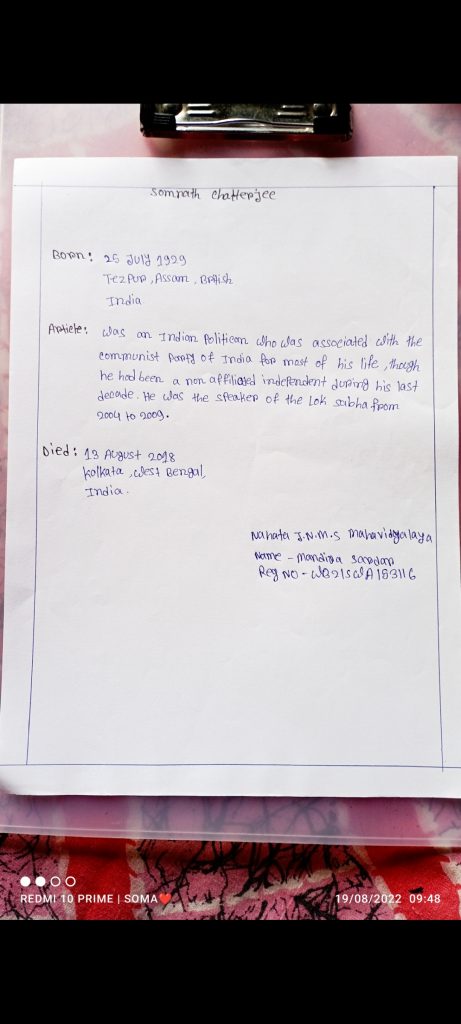 Somnath Chatterjee
Born: 25 July 1929
Tezpur, Assam, British
India
Article: was an Indian Politican who was associated with the
communist Party of India for most of his life, though
he had been a non affiliated independent during his last
decade. He was the speaker of the Lok sabha from
2004 to 2009.
Died: 13 August 2018
Kolkata, West Bengal,
India.
Nahata J.N.M.S Mahavidyalaya
Name - Mandira Sardar
Reg NO - WB21SWA183116
REDMI 10 PRIME | SOMA❤️
19/08/2022 09:48